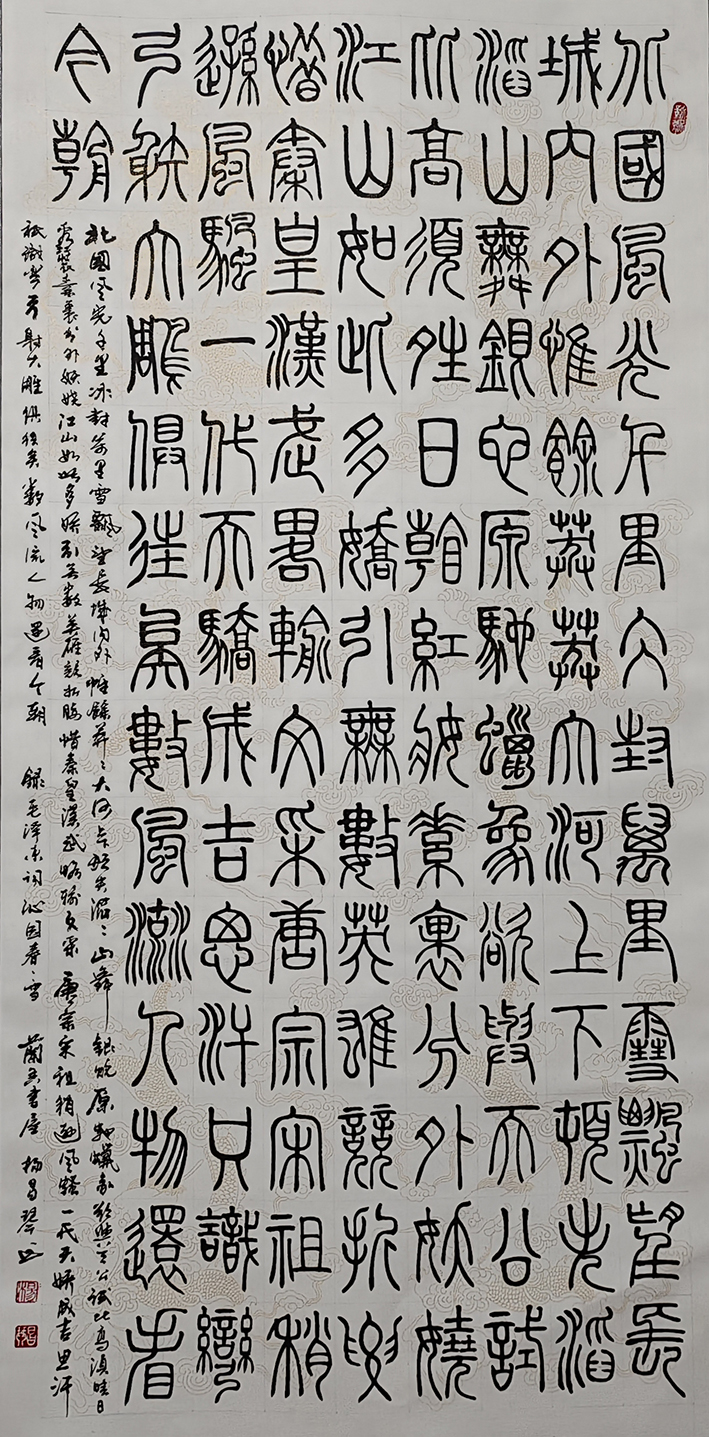 北國風光千里冰封萬里雪飄望長
城内外惟餘莽莽大河上下頓失滔
滔山舞銀它原馳蠟象欲與天公試
比高須晴日看紅裝素裹分外妖嬈
江山如此多嬌引無數英雄競折腰
惜秦皇漢武略輸文采唐宗宋祖稍
遜風騷一代天驕成吉思汗只識彎
弓射大雕俱往矣數風流人物還看
今朝
北國风光千里冰封萬里雪飄望長城内外惟餘莽〻大河上下頓失滔〻山舞銀蛇原馳蠟象欲與天公試比高須晴日
看紅裝素裹分外妖娆江山如此多娇引無數英雄競折腰惜秦皇漢武略輸文采唐宗宋祖稍遜風騷一代天驕成吉思汗
祗識彎弓射大雕俱往矣數風流人物還看今朝 録毛泽东词沁园春·雪 蘭書屋 楊昌琴书